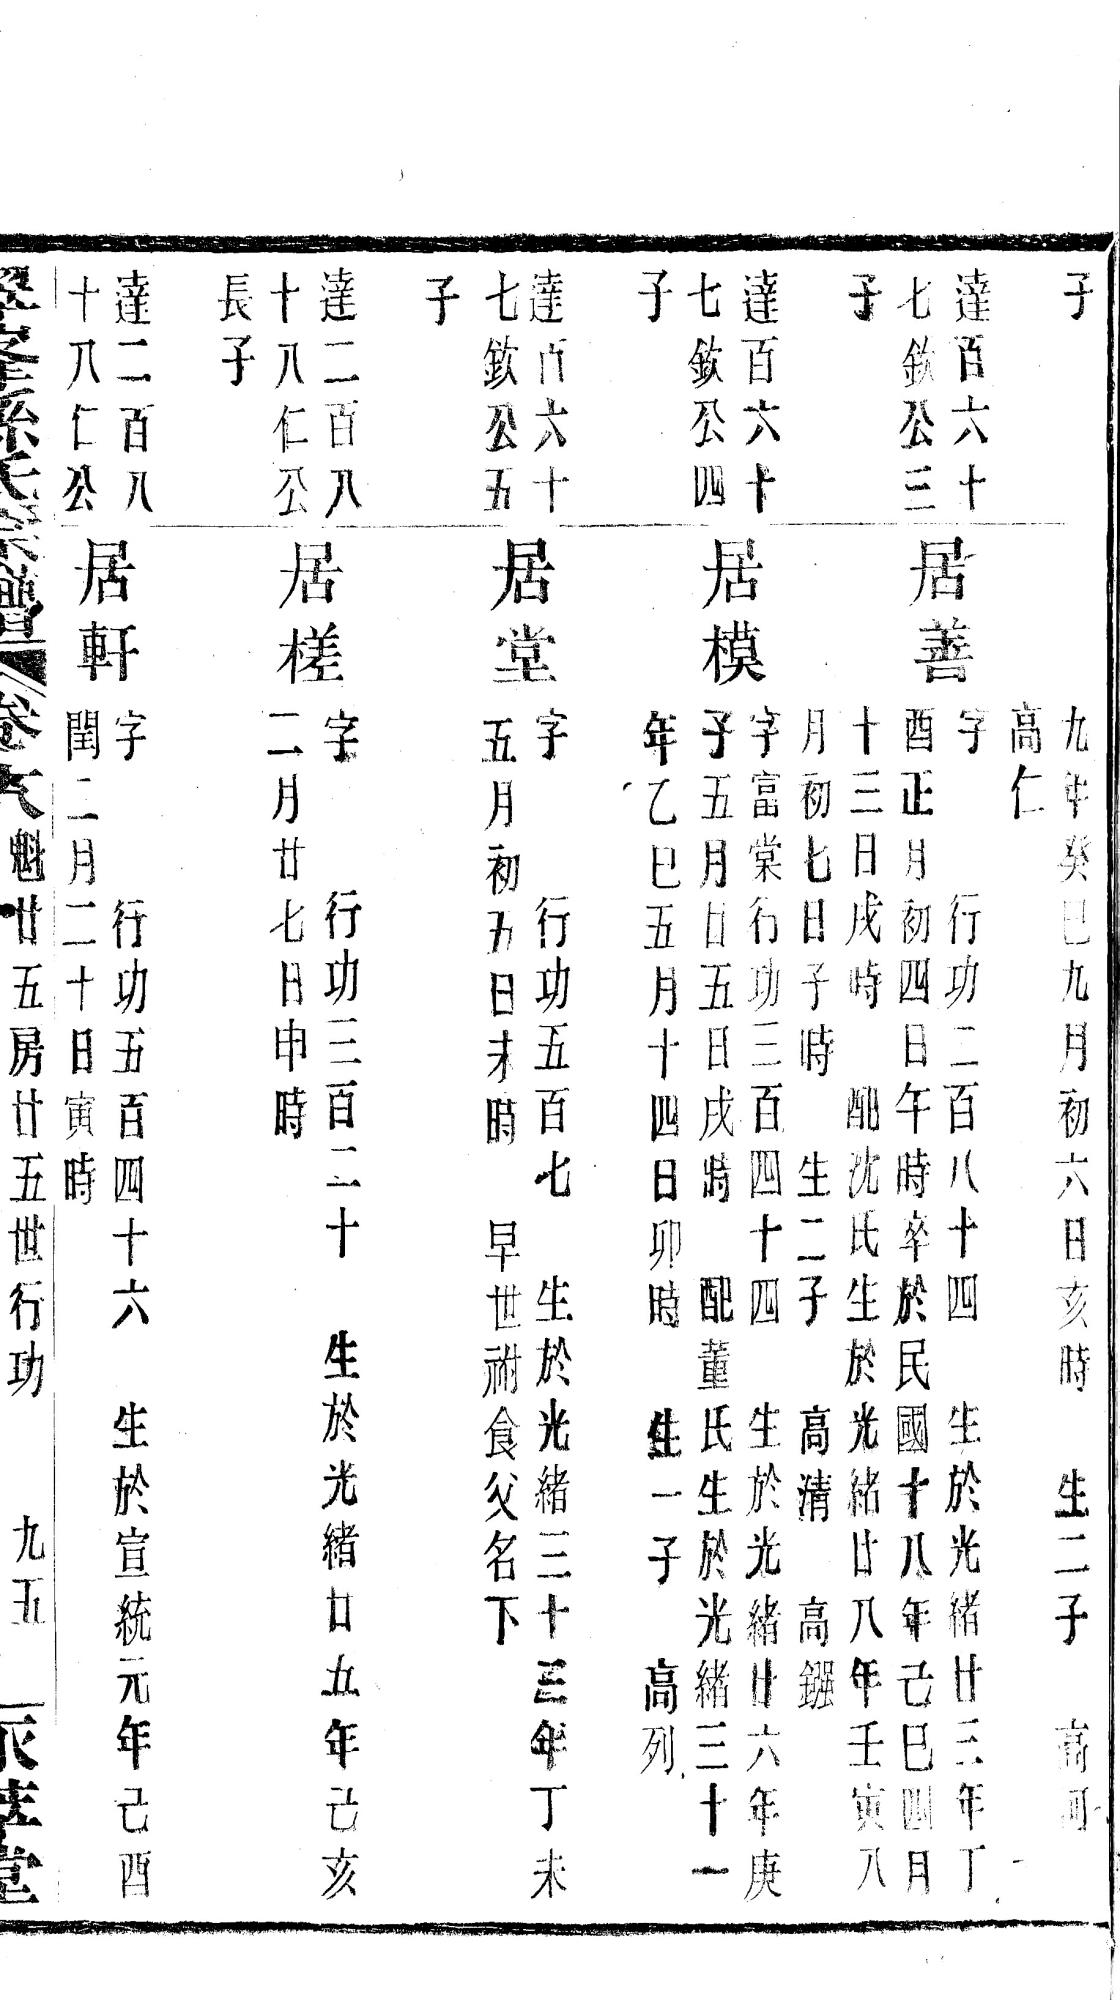 子
九年癸巳九月初六日亥時 生二子 高
高仁
達百六十
七欽公三
子
居善
字 行功二百八十四 生於光緒廿三年丁
酉正月初四日午時卒於民國十八年己巳四月
十三日戌時 配沈氏生於光緒廿八年壬寅八
月初七日子時 生二子 高清 高
達百六十
七欽公四
子
居模
字富棠行功三百四十四 生於光緒廿六年庚
子五月廿五日戌時 配董氏生於光緒三十一
年乙巳五月十四日卯時 生一子 高列
達百六十
七欽公五
子
居堂
字 行功五百七 生於光緒三十三年丁未
五月初五日未時 早世祔食父名下
達二百八
十八仁公
長子
居槎
字 行功三百二十 生於光緒廿五年己亥
二月廿七日申時
達二百八
十八仁公
居軒
字 行功五百四十六 生於宣統元年己酉
閏二月二十日寅時
孫氏宗譜 卷六 魁廿五房廿五世行功 九五